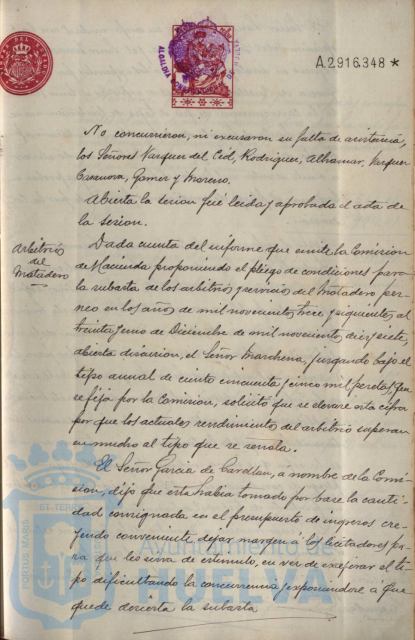 A.2916.348 *
No concurrieron, ni excusaron su falta de asistencia,
los Señores Vazquez del Cid, Rodriguez, Alhamar, Vazquez
Casanova, Gomez y Moreno.
Abierta la sesion fué leida y aprobada el acta de
la sesion.
Arbitrios
del
Matadero
Dada cuenta del informe que emite la Comision
de Hacienda proponiendo el pliego de condiciones para
la subasta de los arbitrios y servicios del Matadero
en los años de mil novecientos trece y siguientes al
treinta y uno de Diciembre de mil novecientos diez y siete,
abierta discusion, el Señor Marchena, juzgando bajo el
tipo anual de ciento cincuenta y cinco mil pesetas, que
se fija por la Comision, solicitó que se elevase esta cifra
por que los actuales rendimientos del arbitrio superan
en mucho al tipo que se señala.
El Señor Garcia de, á nombre de la Comi-
sion, dijo que esta habia tomado por base la canti-
dad consignada en el presupuesto de ingresos cre-
yendo conveniente dejar margen á los licitadores pa-
ra que les sirva de estimulo, en vez de exagerar el ti-
po dificultando la concurrencia y exponiendose á que
quede desierta la subasta
PORTUS MARIS
ET TERRÆ
Ayuntamiento de
HUELVA